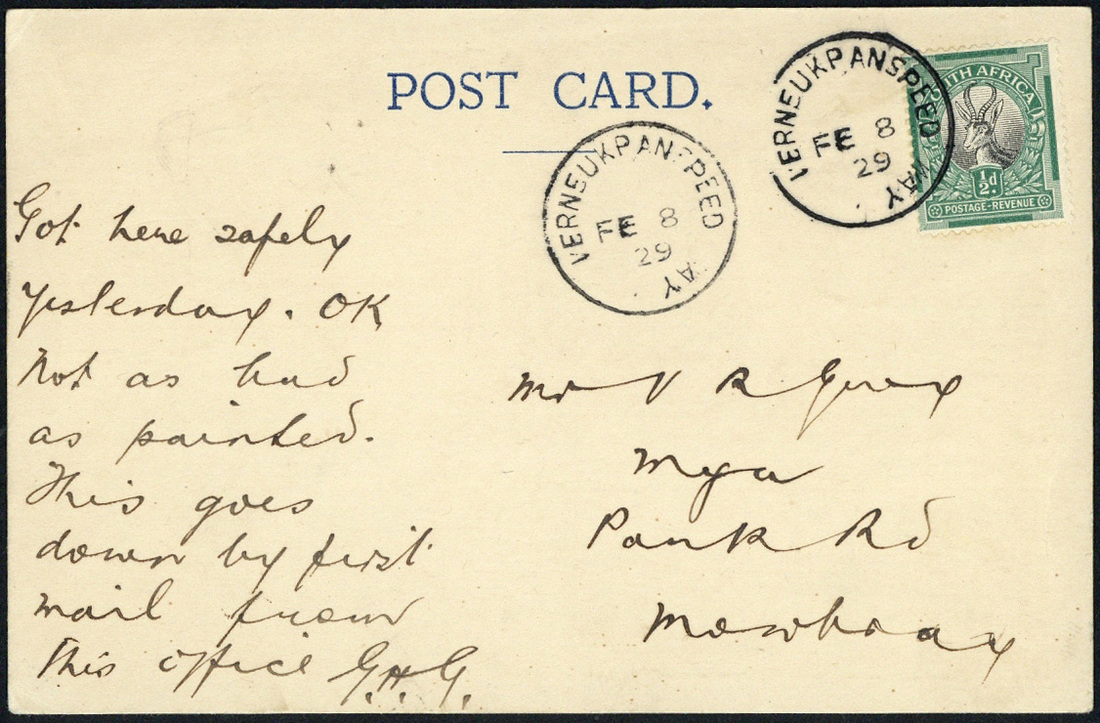 POST CARD.
VERNEUKPANSPEED WAY
FE 8
29
VERNEUKPANSPEED WAY
FE 8
29
SOUTH AFRICA
½d.
POSTAGE-REVENUE
Got here safely
yesterday. OK
Not as bad
as painted.
This goes
down by first
mail from
this office G.H.G.
Mr V R
Park Rd
Mowbray